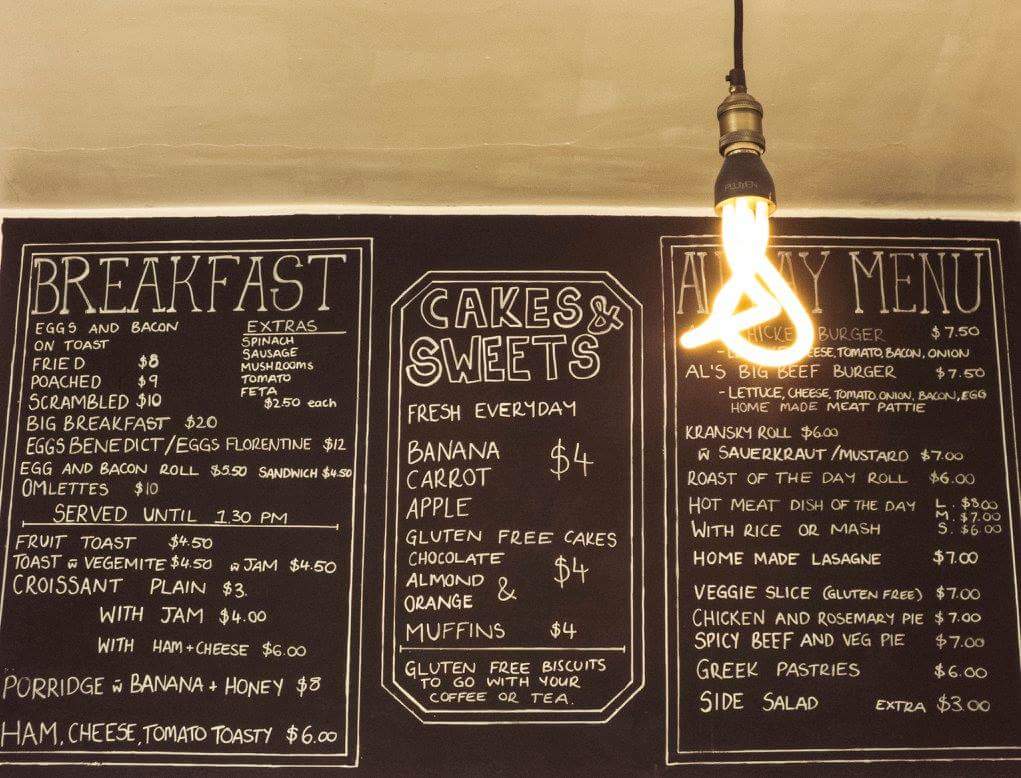 PLUMEN
BREAKFAST
EGGS AND BACON
ON TOAST
FRIED $8
POACHED $9
SCRAMBLED $10
EXTRAS
SPINACH
SAUSAGE
MUSHROOMS
TOMATO
FETA
$2.50 each
BIG BREAKFAST $20
EGGS BENEDICT/EGGS FLORENTINE $12
EGG AND BACON ROLL $5.50 SANDWICH $4.50
OMLETTES $10
SERVED UNTIL 1.30 PM
FRUIT TOAST $4.50
TOAST w̄ VEGEMITE $4.50 w̄ JAM $4.50
CROISSANT PLAIN $3.
WITH JAM $4.00
WITH HAM+CHEESE $6.00
PORRIDGE w̄ BANANA + HONEY $8
HAM, CHEESE, TOMATO TOASTY $6.00
CAKES &
SWEETS
FRESH EVERYDAY
BANANA $4
CARROT
APPLE
GLUTEN FREE CAKES
CHOCOLATE $4
ALMOND &
ORANGE
MUFFINS $4
GLUTEN FREE BISCUITS
TO GO WITH YOUR
COFFEE OR TEA.
MENU
CHICKEN BURGER $7.50
TOMATO, BACON, ONION
AL'S BIG BEEF BURGER $7.50
-LETTUCE, CHEESE, TOMATO, ONION, BACON, EGG
HOME MADE MEAT PATTIE
KRANSKY ROLL $6.00
w̄ SAUERKRAUT/MUSTARD $7.00
ROAST OF THE DAY ROLL $6.00
HOT MEAT DISH OF THE DAY L. $8.00
M. $7.00
WITH RICE OR MASH S. $6.00
HOME MADE LASAGNE $7.00
VEGGIE SLICE (GLUTEN FREE) $7.00
CHICKEN AND ROSEMARY PIE $7.00
SPICY BEEF AND VEG PIE $7.00
GREEK PASTRIES $6.00
SIDE SALAD EXTRA $3.00